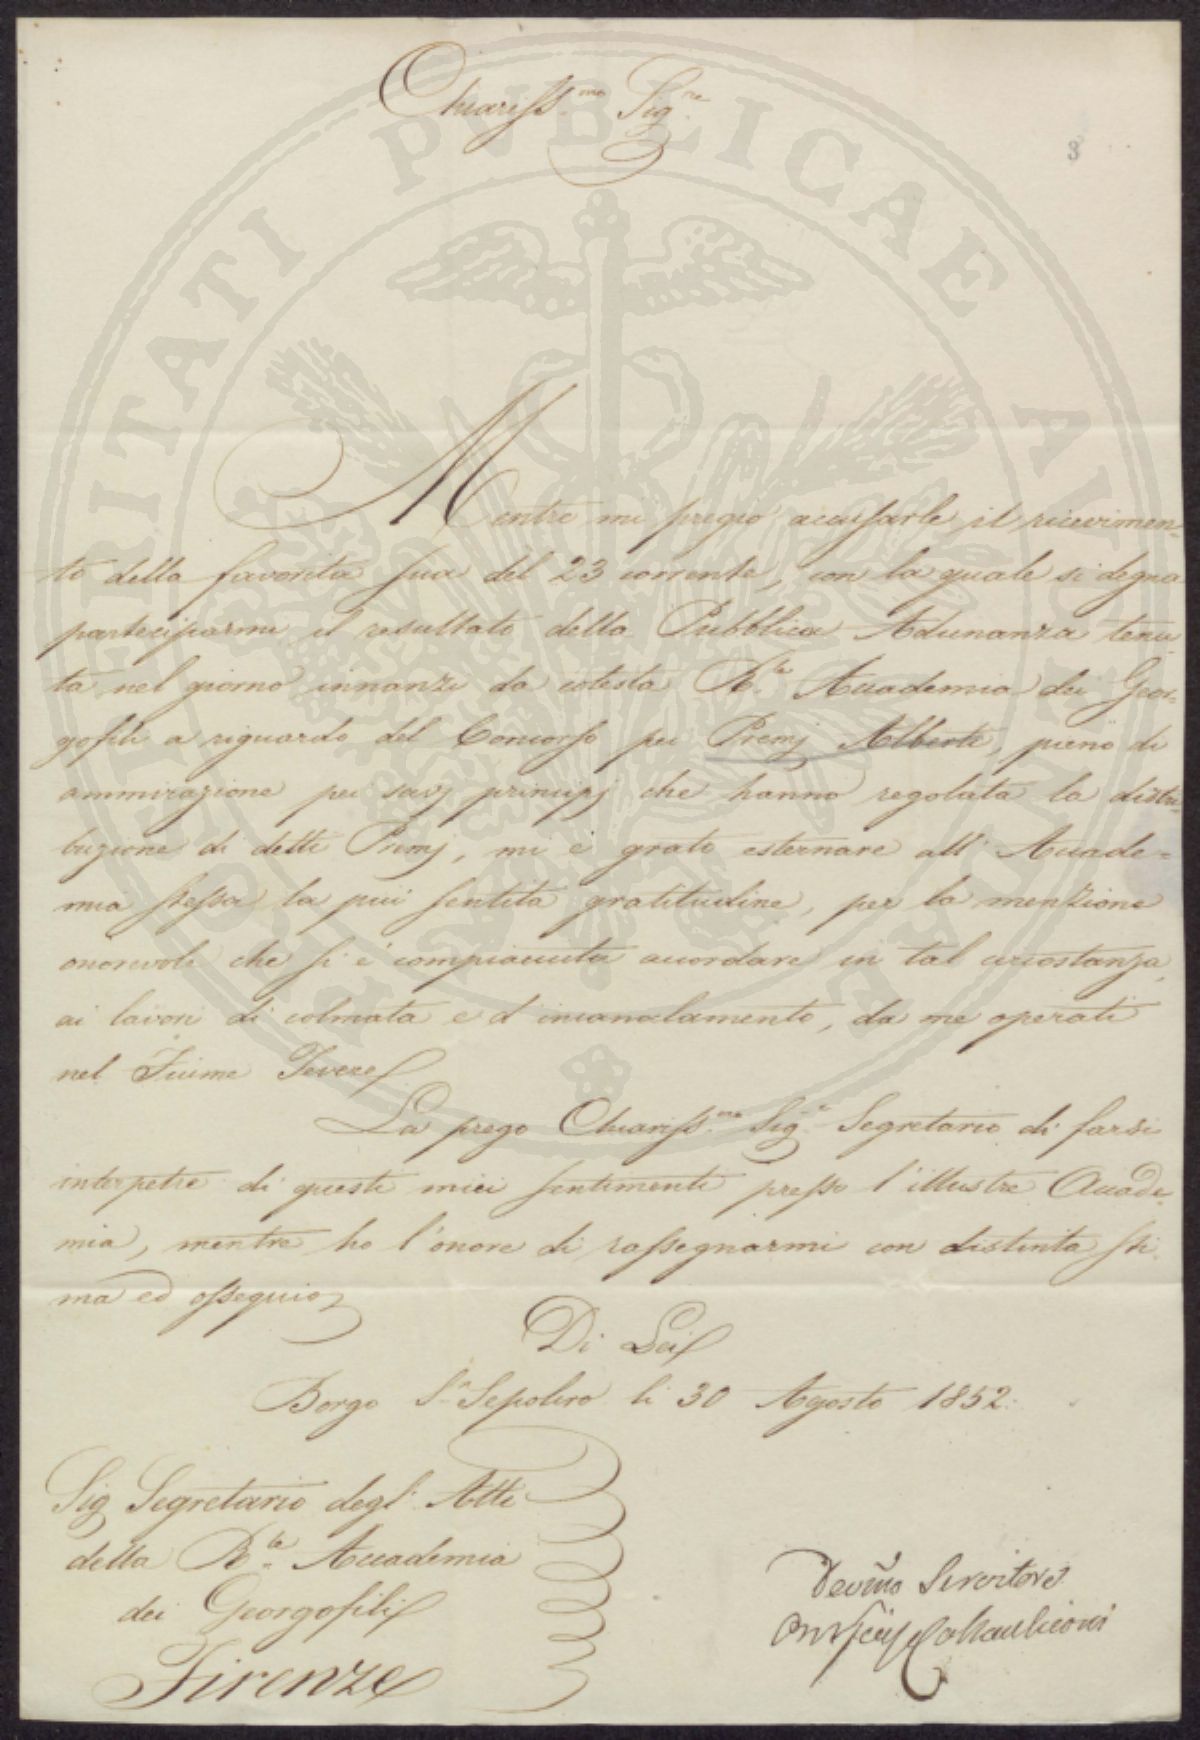 Chiariss.mo Sig.re
3
Mentre mi pregio accussarle il ricevimen-
to della favorita sua del 23 corrente, con la quale si degna
parteciparmi il resultato della Pubblica Adunanza tenu
ta nel giorno innanzi da cotesta R.le Accademia dei Geor-
gofili a riguardo del Concorso pei Premj Alberti, pieno di
ammirazione pei savj principj che hanno regolata la distri-
buzione di detti Premj, mi è grato esternare all' Accade-
mia stessa la più sentita gratitudine, per la menzione
onorevole che si è compiaciuta accordare in tal circostanza,
ai lavori di colmata e d' incanalamento, da me operati
nel Fiume Tevere
La prego Chiariss.mo Sig.re Segretario di farsi
interpetre di questi miei sentimenti presso l'illustre Accade-
mia, mentre ho l'onore di rassegnarmi con distinta sti
ma ed ossequio
Di Lei
Borgo S.n Sepolcro li 30 Agosto 1852.
Sig Segretario degl' Atti
della R.le Accademia
dei Georgofili
Firenze
Devmo Servitore
PROSPERITATI PUBLICAE AUGENDAE